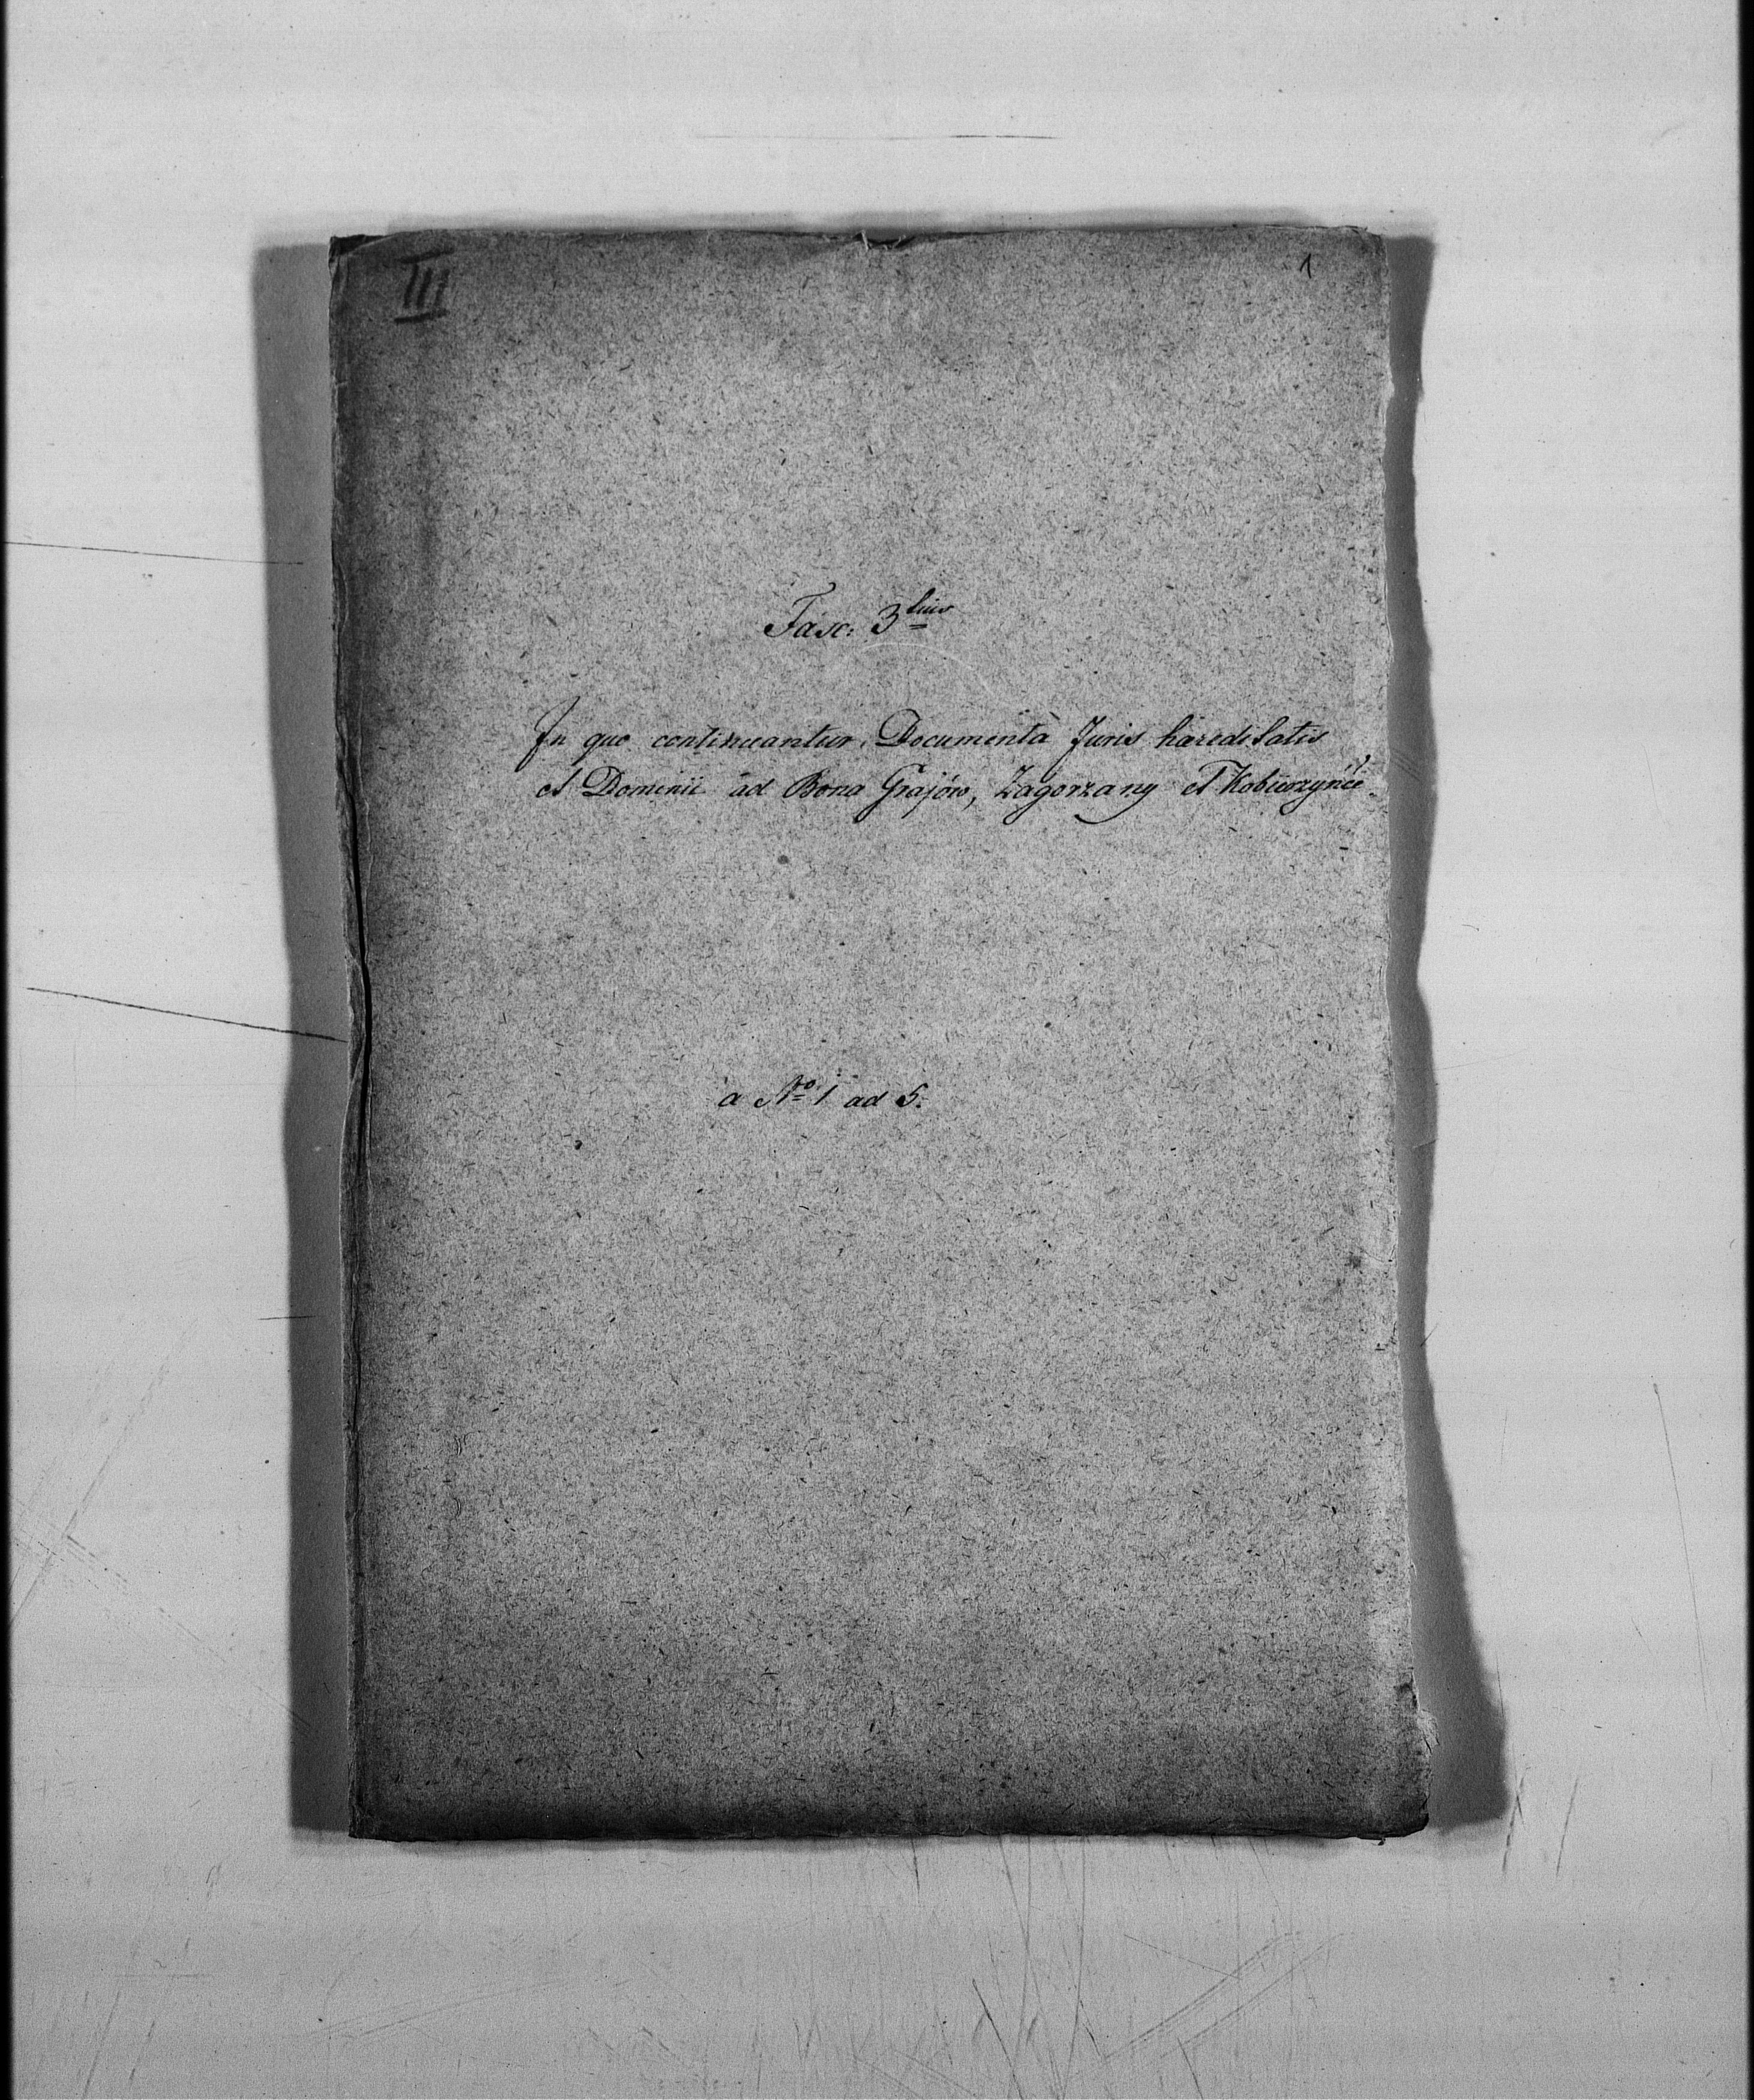 III
1
Fasc: 3tius
In quo continuantur Documenta Juris haereditatis
et Dominii ad Bona Grajów, Zagorzany et
a No 1 ad 5.